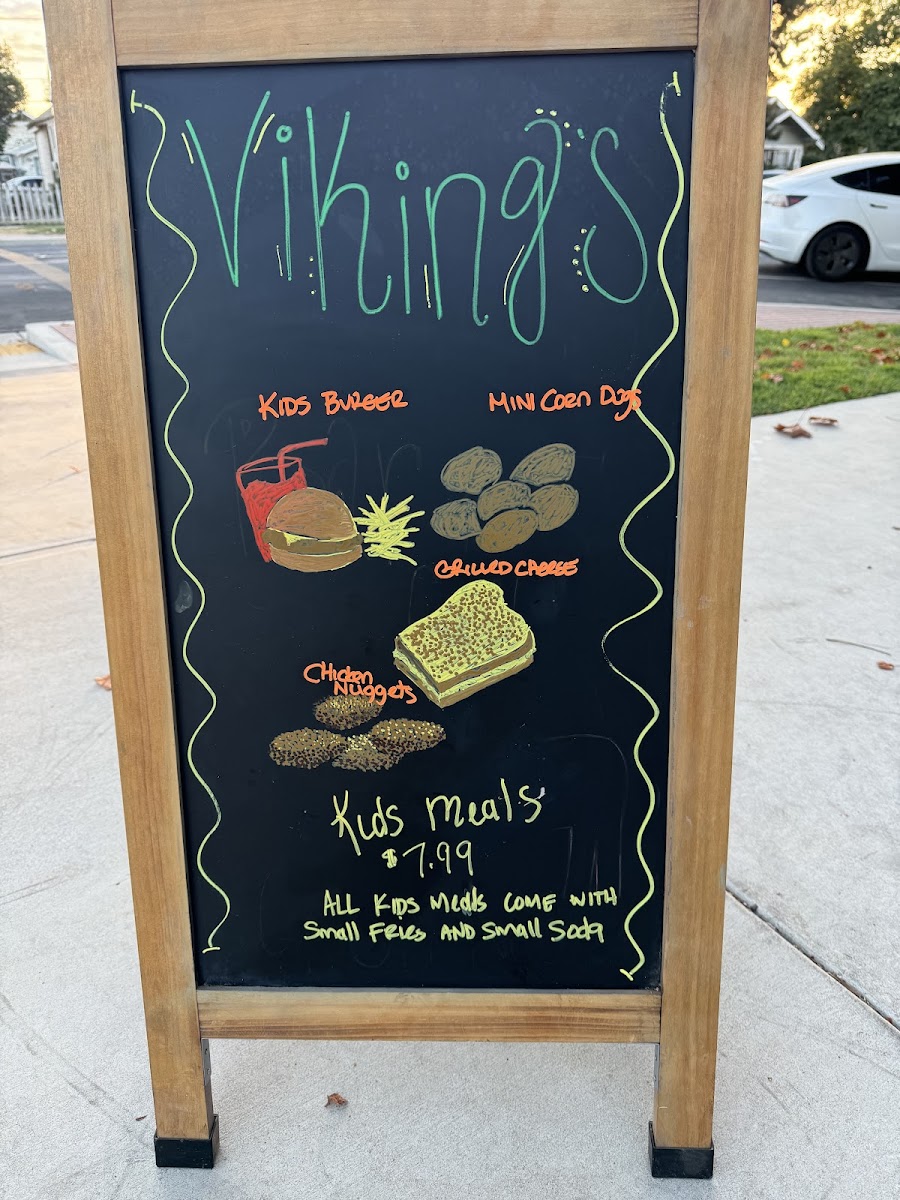 Viking's
KIDS BURGER
MINI Corn Dogs
GRILLED CHEESE
CHicken
Nuggets
Kids Meals
$7.99
ALL KIDS Meals COME WITH
Small FRIES AND Small Soda